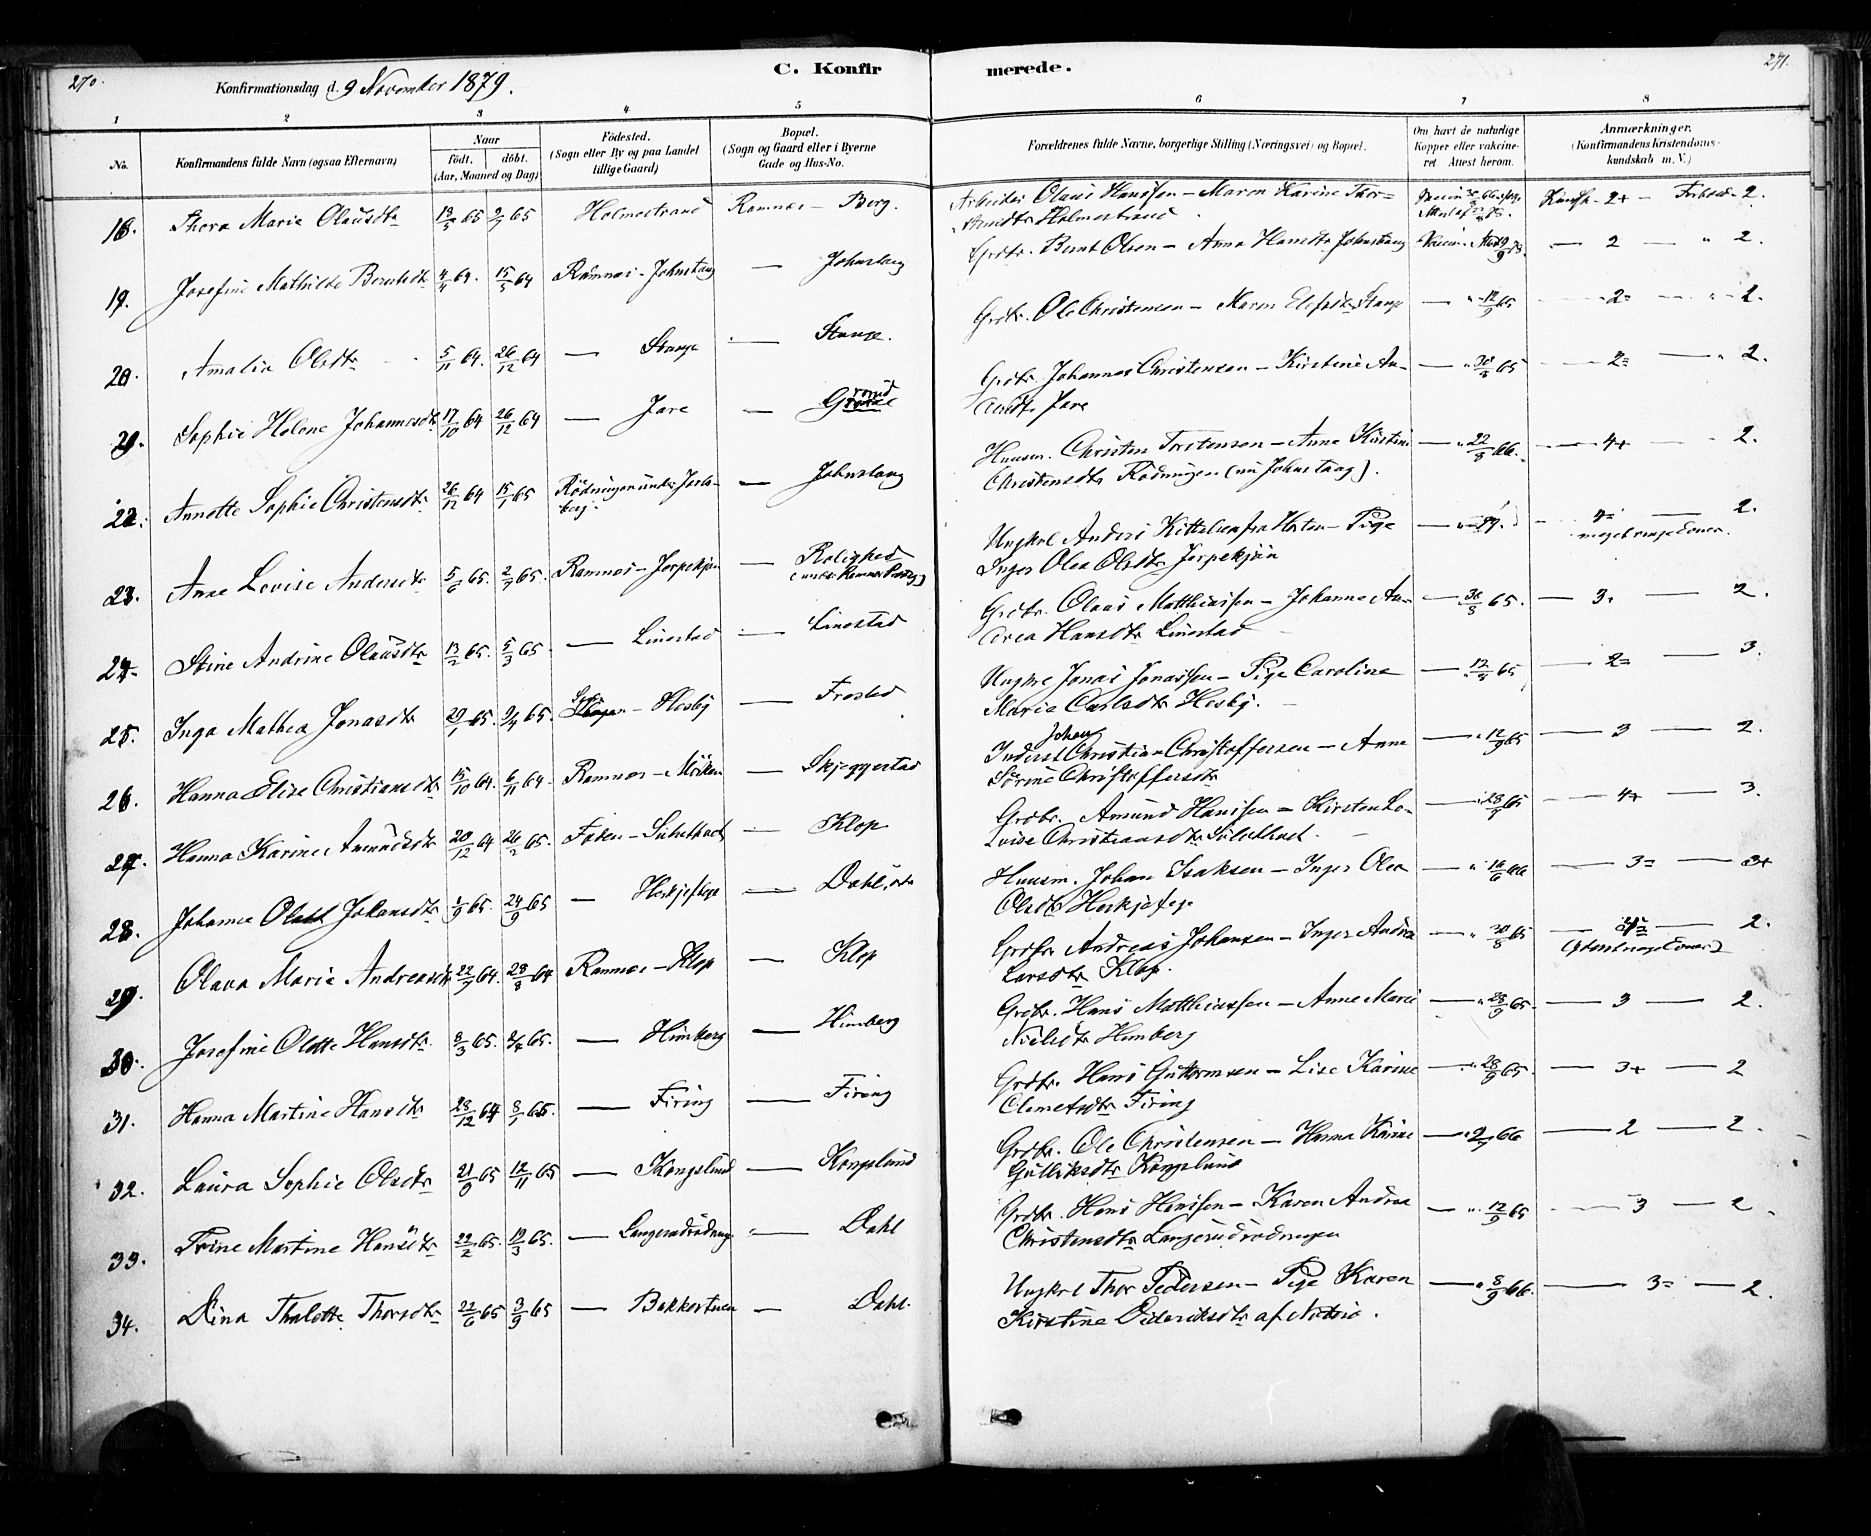 270.
Konfirmationsdag d. 9 November 1879.
C. Konfir
merede.
271.
1 2 3 4 5 6 7 8
No.
Konfirmandens fulde Navn (ogsaa Efternavn)
Naar
født. døbt.
(Aar, Maaned og Dag)
Fødested.
(Sogn eller By og paa Landet
tillige Gaard)
Bopæl.
(Sogn og Gaard eller i Byerne
Gade og Hus-No.
Forældrenes fulde Navne, borgerlige Stilling (Næringsvei) og Bopæl.
Om havt de naturlige
Kopper eller vakcine-
ret Attest herom.
Anmærkninger.
(Konfirmandens Kristendoms-
kundskab m. V.)
18. Thora Marie Olausdtr 65 65 Holmestrand Ramnæs - Berg. Arbeider Olaus Hanssen - Maren Karine Thor-
Holmestrand 2+ - 2.
19. Josefine Mathilde Berntsdtr 4/4 64. 15/5 64 Ramnæs - Johnstang — Johnstang Grdbr. Bernt Olsen - Anna Hansdtr Johnstang — 2 — " 2.
20. Amalia Olsdtr 5/11 64. 26/12 64 — Stange — Stange. Grdbr. Ole Christensen - Maren Stange — " 12/9 65 — 2= — " 2.
21. Sophie Helene Johannesdtr 17/10 64 26/12 64 — Jare — Grdbr. Johannes Christensen - Kirstine An-
Jare — " 65 — 2= — " 2.
22. Annette Sophie Christensdtr 26/12 64 15/1 65 Rödningen under Jarls-
berg. — Johnstang Huusm. Christen Torstensen - Anne Kirstine
Christensdtr Rödningen (nu Johnstang). — " 22/8 66. — 4+ — 2.
23. Anne Lovise Andersdtr 5/6 65. 2/7 65. Ramnæs - — Rolighed Ungkrl Anders Kittelsen fra Horten - Pige
Inger Olea Olsdtr — 2.
24. Stine Andrine Olausdtr 13/2 65. 5/3 65. — Linestad — Linestad Grdbr. Olaus Matthiassen - Johanne An-
drea Hansdtr Linestad — 30/8 65. — 3. — 2.
25. Inga Mathea Jonasdtr 29/1 65. 9/4 65. - Hesby — Frostad Ungkrl Jonas Jonassen - Pige Caroline
Marie Carlsdtr Hesby. — 65 — 2= — 3.
26. Hanna Elise Christiansdtr 15/10 64. 6/11 64. Ramnæs - — Skjeggestad Inderst Johan Christian Christoffersen - Anne
Sörine Christoffersdtr — " 12/9 65 — 3 — 2.
27. Hanna Karine Amundsdtr 20/12 64 26/2 65. - — Klop Grdbr. Amund Hanssen - Kirsten Lo-
vise Christiansdtr — 65 — 4+ — 3.
28. Johanne Johansdtr 1/9 65. 24/9 65 — — Dahl, Huusm. Johan Isaksen - Inger Olea
Olsdtr — " 16/6 66 — 3= — 3+
29. Olava Marie Andreasdtr 22/7 64. 28/8 64 Ramnæs - Klop — Klop Grdbr. Andreas Johansen - Inger Andrea
Larsdtr Klop. — " 30/8 65 — 2.
30. Josefine Olette Hansdtr. 8/3 65. 65. — Himberg — Himberg Grdbr. Hans Matthiassen - Anne Marie
Nielsdtr Himberg — " 28/9 65. — 3 — 2.
31. Hanna Martine Hansdtr 28/12 64 8/1 65. — Firing — Firing Grdbr. Hans Guttormsen - Lise Karine
Clemetsdtr Firing — " 28/9 65. — 3+ — 2
32. Laura Sophie Olsdtr 65 12/11 65 — Kongslund — Kongslund Grdbr. Ole Christensen - Hanna Karine
Gulliksdtr Kongslund — 66 — 2 — 2.
33. Trine Martine Hansdtr 22/2 65. 19/3 65. — — Dahl Grdbr. Hans Hanssen - Karen Andrea
Christensdtr Langerudrödningen — " 12/9 65 — 3 — 2
34. Dina Thalette Thorsdtr 22/6 65 3/9 65 — Bakkestuen — Dahl. Ungkrl Thor Pedersen - Pige Karen
Kirstine Dideriksdtr af — " 8/9 66. — 3= — 2.